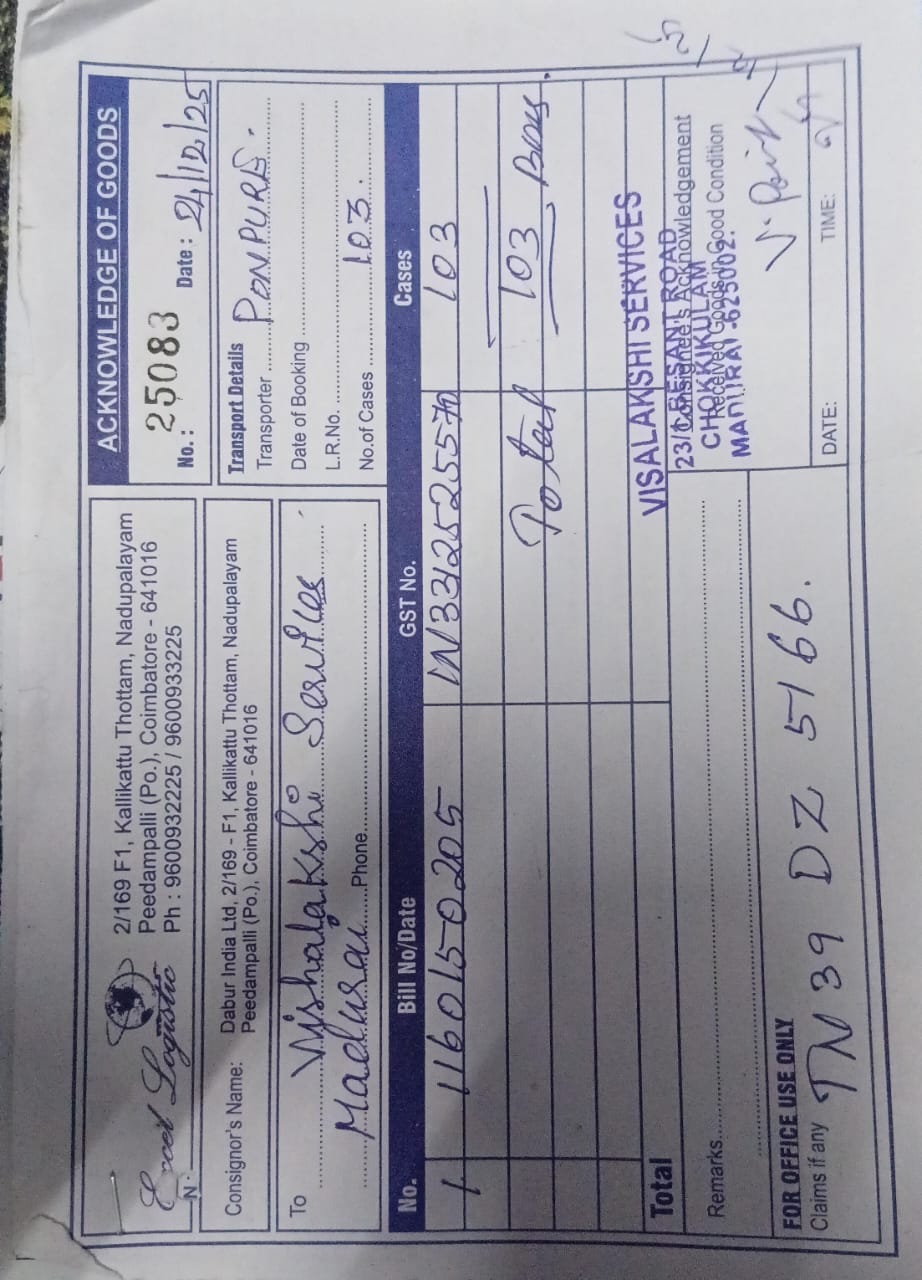 Excel Logistic
2/169 F1, Kallikattu Thottam, Nadupalayam
Peedampalli (Po.), Coimbatore - 641016
Ph : 9600932225 / 9600933225
ACKNOWLEDGE OF GOODS
No.: 25083 Date : 24/12/25
Consignor's Name: Dabur India Ltd, 2/169 - F1, Kallikattu Thottam, Nadupalayam
Peedampalli (Po.), Coimbatore - 641016
To Vishalakshi Services
Madurai Phone
Transport Details
Transporter PONPURE.
Date of Booking
L.R.No.
No.of Cases 103.
No. Bill No/Date GST No. Cases
1 1160150205 IN3312525570 103
Total 103 Box.
Total
VISALAKSHI SERVICES
23/1 BESANT ROAD
CHOKKIKULAM
MADURAI-625002.
Consignee's Acknowledgement
Received Goods in Good Condition
Remarks
FOR OFFICE USE ONLY
Claims if any TN 39 DZ 5166.
DATE: TIME: